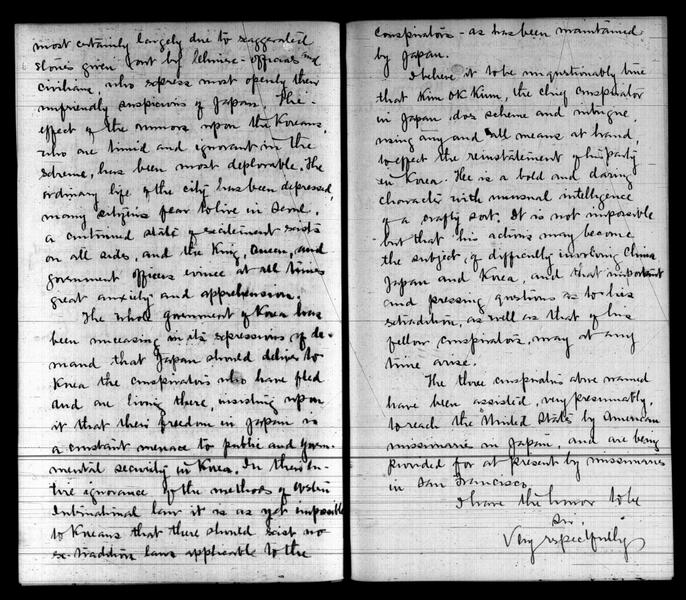 most certainly largely due to exaggerated
stories given out by Chinese officials and
civilians, who express most openly their
unfriendly suspicions of Japan. The
effect of the rumors upon the Koreans,
who are timid and ignorant in the
extreme, has been most deplorable. The
ordinary life of the city has been depressed,
many citizens fear to live in Seoul,
a continued state of excitement exists
on all sides, and the King, Queen, and
government officers evince at all times
great anxiety and apprehension.
The whole government of Korea has
been unceasing in its expressions of de-
mand that Japan should deliver to
Korea the conspirators who have fled
and are living there, insisting upon
it that their freedom in Japan is
a constant menace to public and govern-
mental security in Korea. In their en-
tire ignorance of the methods of Western
International law it is as yet impossible
to Koreans that there should exist no
extradition laws applicable to the
conspirators - as has been maintained
by Japan.
I believe it to be unquestionably true
that Kim OK Kium, the chief conspirator
in Japan, does scheme and intrigue,
using any and all means at hand,
to effect the reinstatement of his party
in Korea. He is a bold and daring
character with unusual intelligence
of a crafty sort. It is not impossible
but that his actions may become
the subject of difficulty involving China
Japan and Korea, and that important
and pressing questions as to his
extradition, as well as that of his
fellow conspirators, may at any
time arise.
The three conspirators above named
have been assisted, very presumably,
to reach the United States by American
missionaries in Japan, and are being
provided for at present by missionaries
in San Francisco.
I have the honor to be
Sir,
Very respectfully